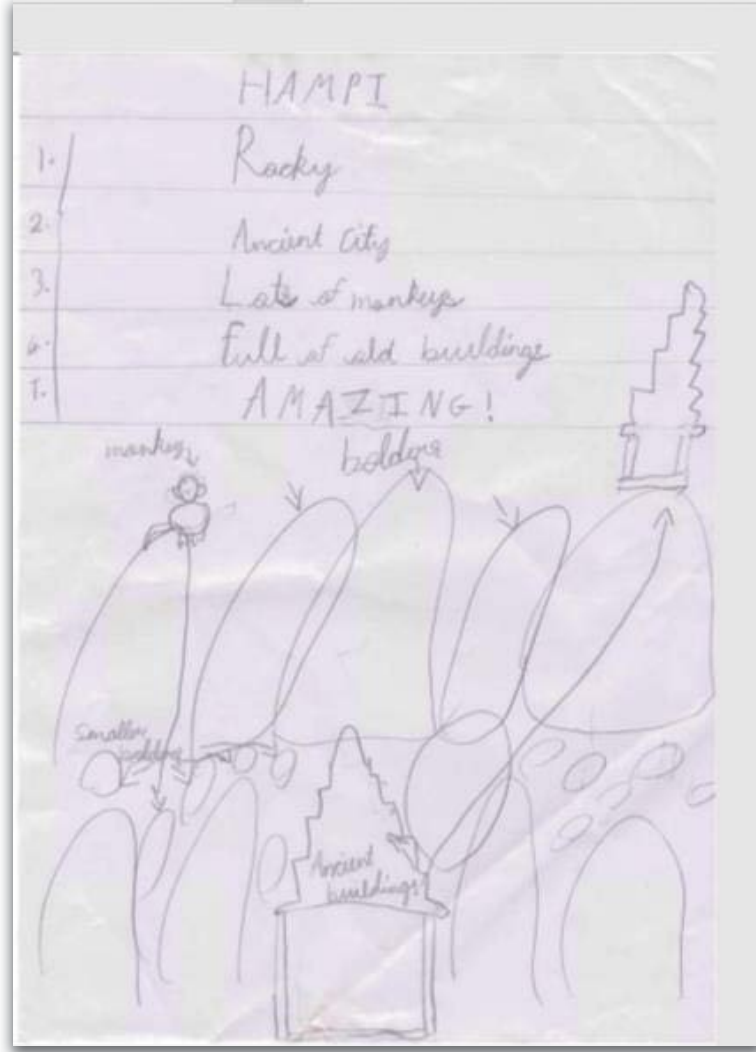 HAMPI
1. Rocky
2. Ancient City
3. Lots of monkeys
4. Full of old buildings
5. AMAZING!
monkey
bolders
Smaller
bolders
Ancient
buildings!